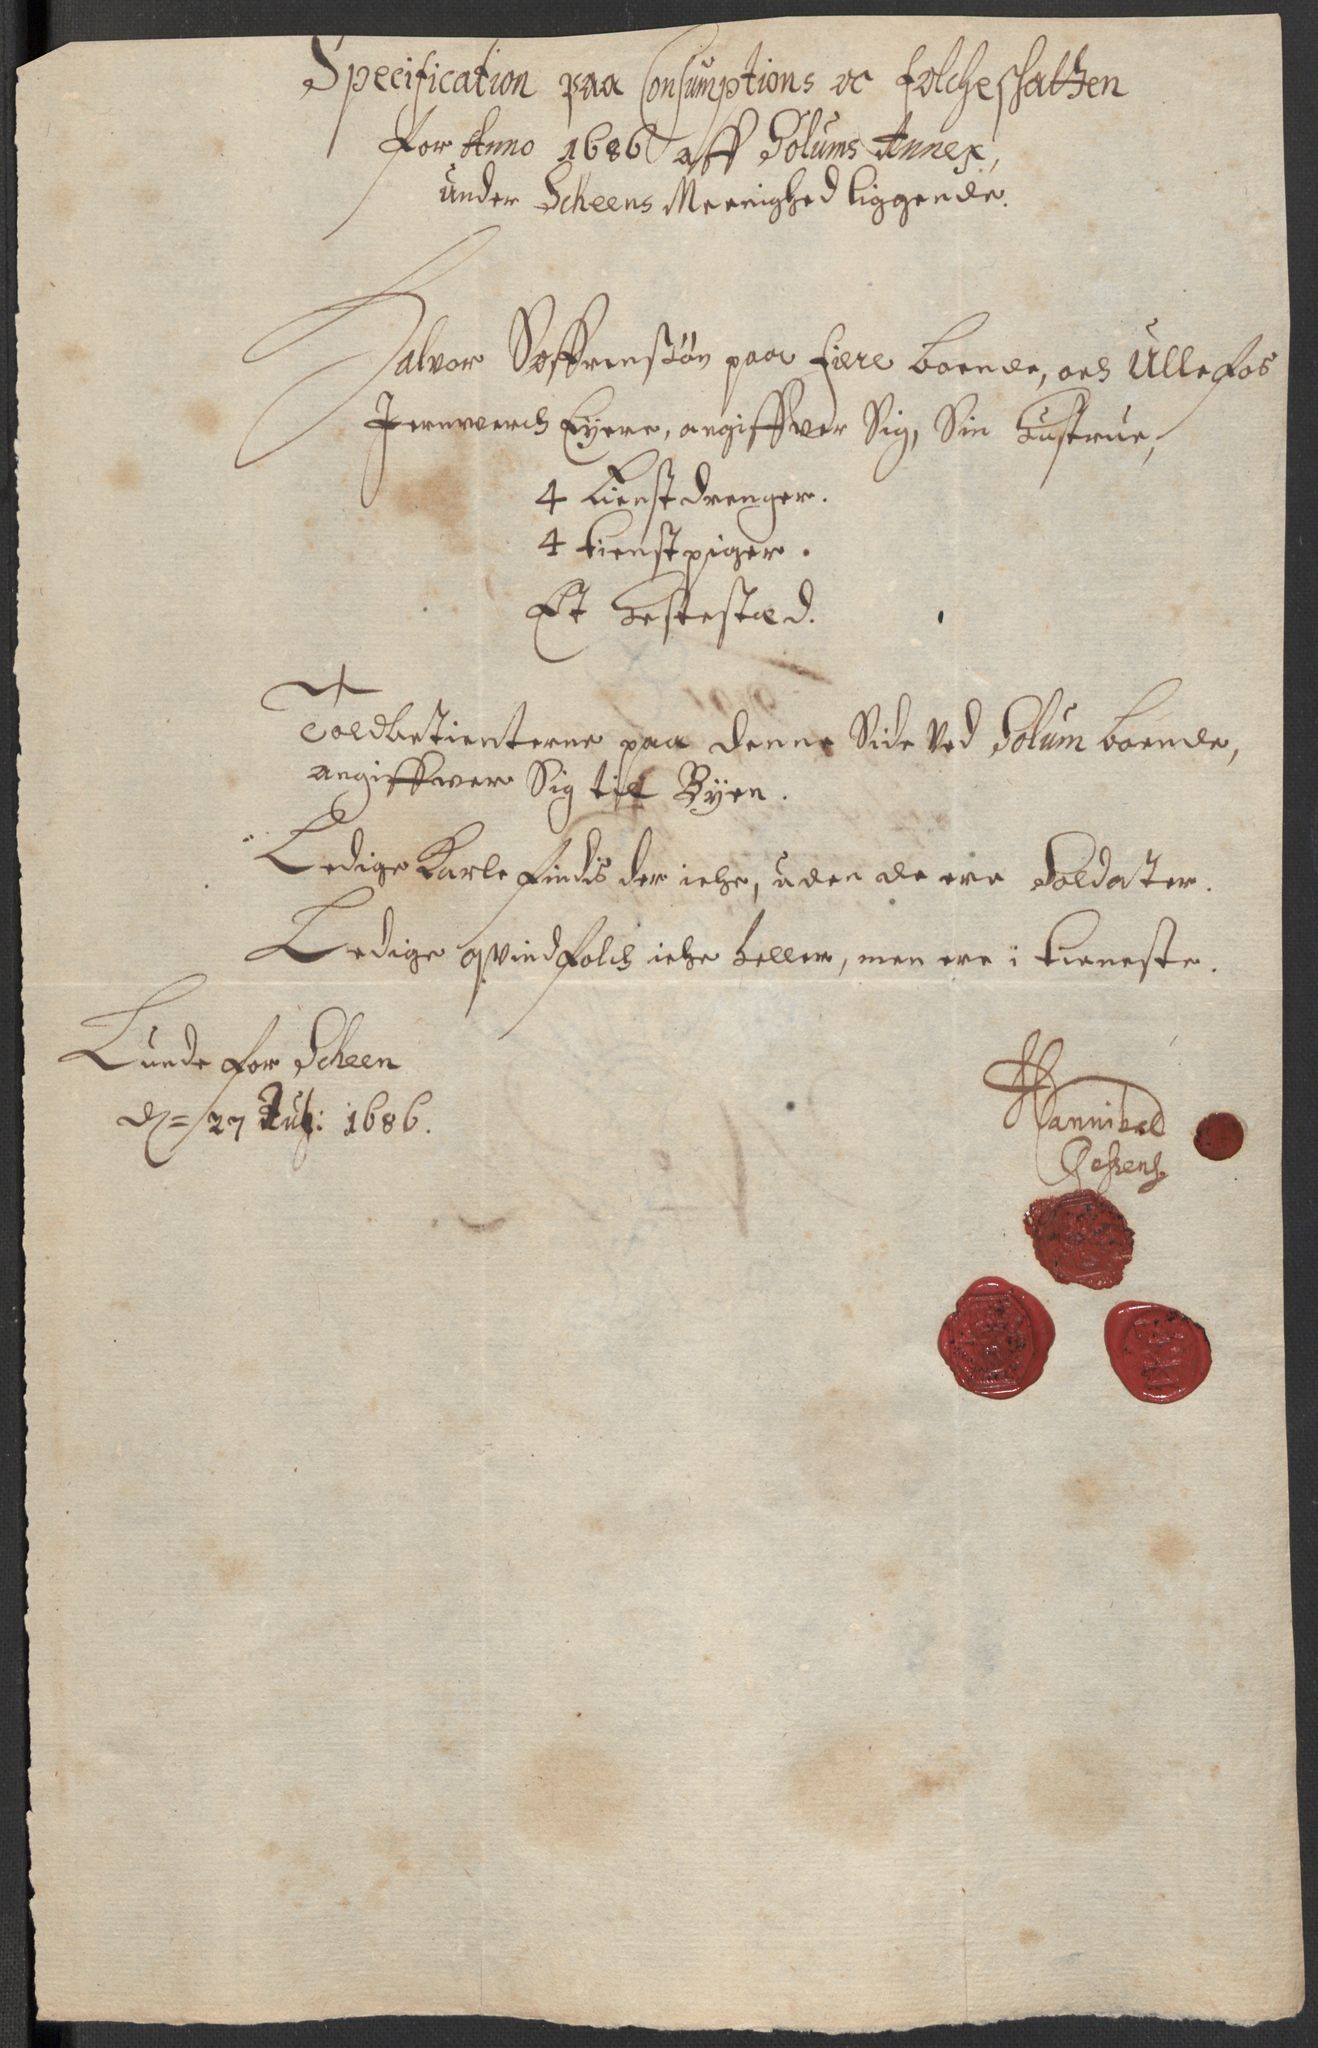 Specification paa Consumptions oc folcheskatten
for Anno 1686 aff Solums Annex,
under Scheens Meenighed liggende.
Halvor Søffrensøn paa Fære boende, och Ullefos
Jernverch Eyere, angiffver Sig, Sin hustrue,
4 tienstdrenger.
4 tienstpiger.
Et hestested.
Toldbetienterne paa denne Side ved Solum boende,
angiffver Sig til Byen.
Ledige Karle findis der iche, uden de ere Soldater.
Ledige qvindfolch iche heller, men ere i tieneste.
Lunde for Scheen
d= 27 Aug: 1686.
Hannibal